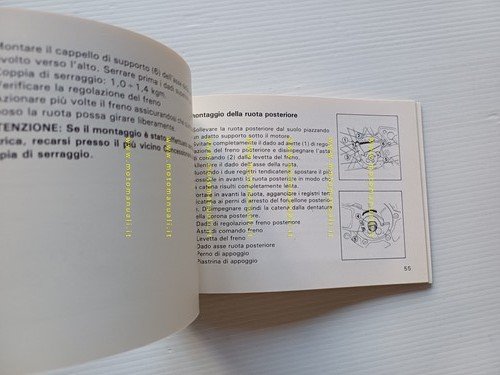 Montare il cappello di supporto (6) dell'asse
volto verso l'alto. Serrare prima i dadi
coppia di serraggio: 1,0 - 1,4 kgm.
Verificare la regolazione del freno
Azionare più volte il freno assicurandosi che
la ruota possa girare liberamente.
Se il montaggio è stato
recarsi presso il più vicino
di serraggio.
montaggio della ruota posteriore
Sollevare la ruota posteriore dal suolo piazzando
un adatto supporto sotto il motore.
Svitare completamente il dado ad alette (1) di regi-
del freno posteriore e disimpegnare l'asta
comando (2) dalla levetta del freno.
il dado dell'asse della ruota.
i due registri tendicatena spostare il più
possibile in avanti la ruota posteriore in modo che
la catena risulti completamente lenta.
in avanti la ruota, agganciare i registri ten-
ai perni di arresto del forcellone posteriore
Disimpegnare quindi la catena dalla dentatura
della corona posteriore.
Dado di regolazione freno posteriore
Asta di comando freno
Levetta del freno
Dado asse ruota posteriore
Perno di appoggio
Piastrina di appoggio
55
www.motomanuali.it
www.motomanuali.it
www.motomanuali.it
www.motomanuali.it